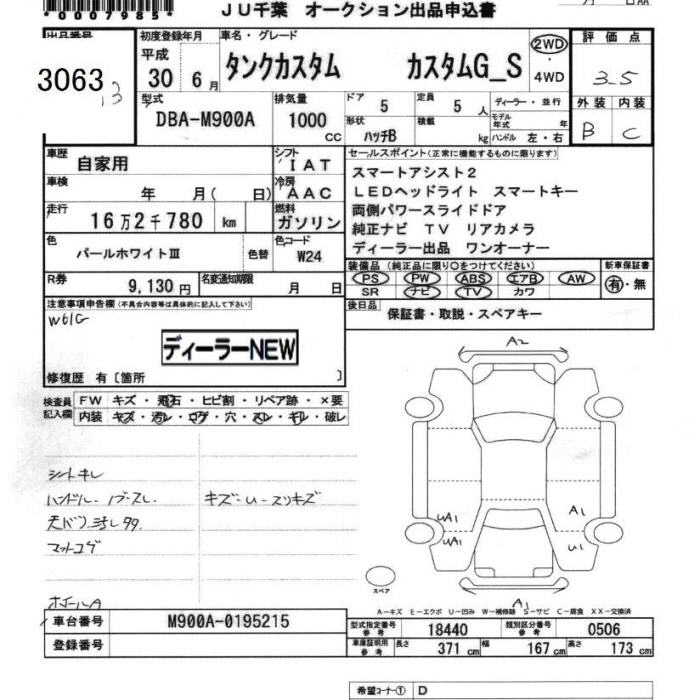 *0007985*
JU千葉 オークション出品申込書
出品番号
3063
13
初度登録年月
平成
30 6月
車名・グレード
タンクカスタム カスタムG_S
2WD
・
4WD
評価点
3.5
外装 内装
B C
型式
DBA-M900A
排気量
1000
cc
ドア
5
定員
5 人
ディーラー・並行
形状
ハッチB
積載
kg
モデル年式 年
ハンドル 左・右
車歴
自家用
シフト
IAT
車検
年 月(日)
冷房
AAC
走行
16万2千780 km
燃料
ガソリン
色
パールホワイトⅢ
色替
色コード
W24
R券
9,130円
名変通知期限
月 日
セールスポイント(正常に機能するものに限ります)
スマートアシスト2
LEDヘッドライト スマートキー
両側パワースライドドア
純正ナビ TV リアカメラ
ディーラー出品 ワンオーナー
装備品(純正品に限り○をつけてください)
PS PW ABS エアB AW
SR ナビ TV カワ
新車保証書
有・無
後日品
保証書・取説・スペアキー
注意事項申告欄(不具合内容等は具体的に記入して下さい)
W61G
ディーラーNEW
修復歴 有〔箇所 〕
検査員記入欄
FW キズ・飛石・ヒビ割・リペア跡・×要
内装 キズ・汚レ・コゲ・穴・スレ・キレ・破レ
シートキレ
ハンドル・ノブスレ
キズ・U・スリキズ
天バリ汚レ タタ
マットコゲ
ホイールA
A2
UA1
UA1
A1
U1
A1
スペア
A-キズ E-エクボ U-凹み W-補修跡 S-サビ C-腐食 XX-交換済
車台番号
M900A-0195215
登録番号
型式指定番号
参考
18440
類別区分番号
参考
0506
車庫証明用
参考
長さ 371cm 幅 167cm 高さ 173cm
希望コーナー① D